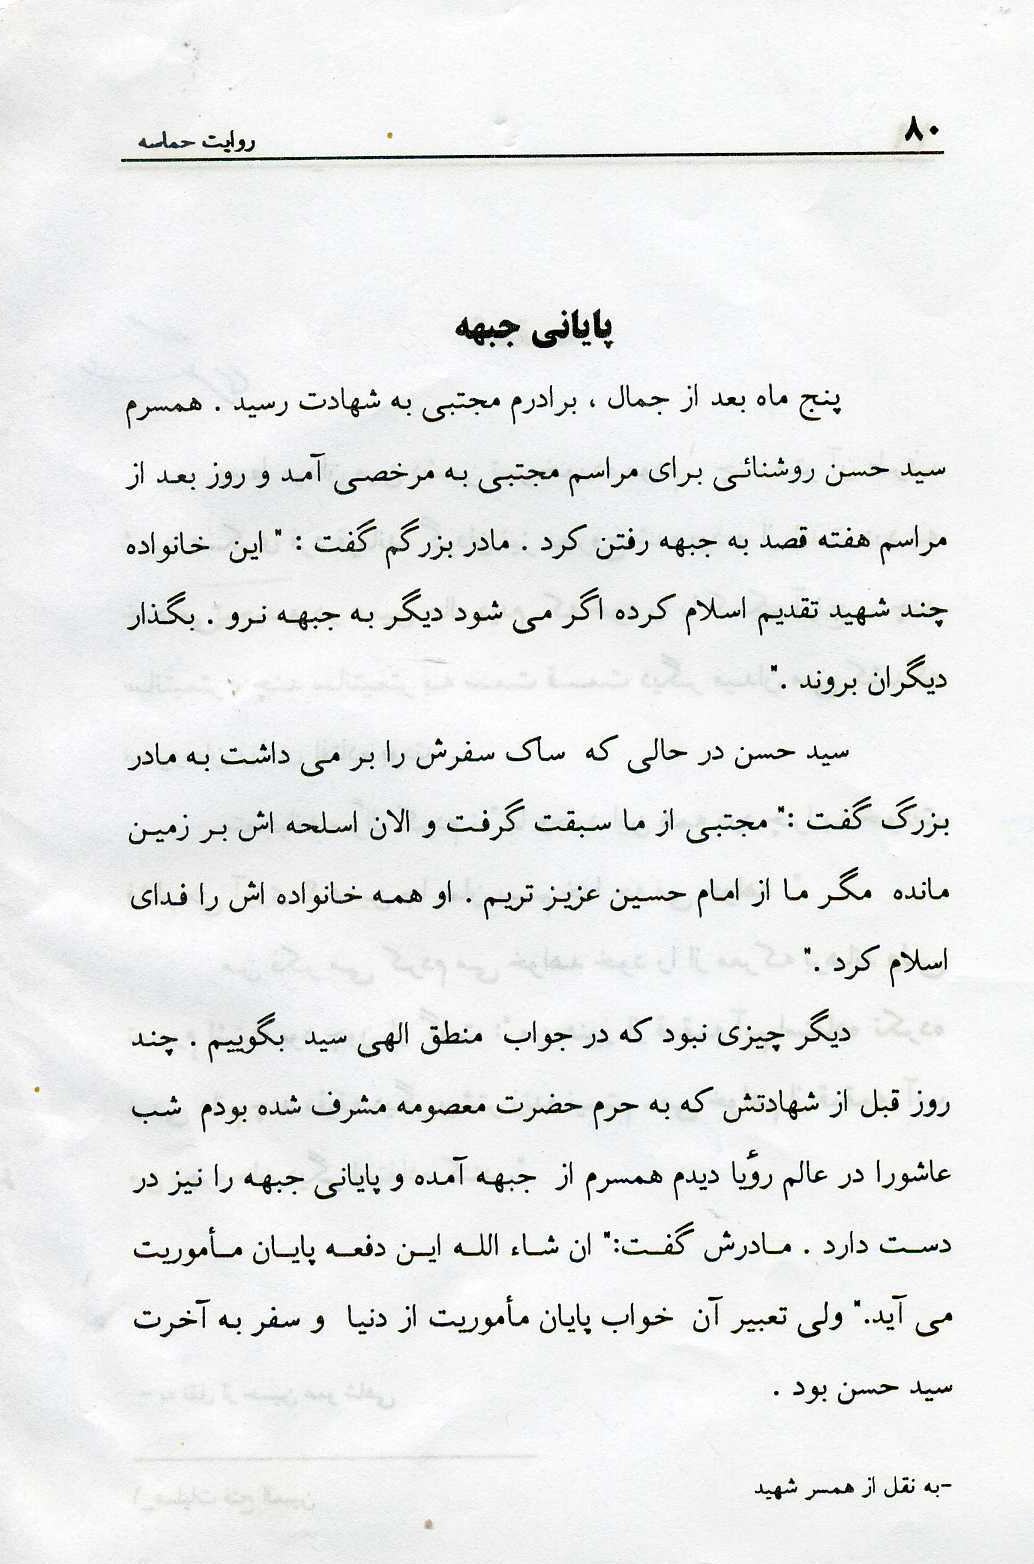 ۸۰
روایت حماسه
پایانی جبهه
پنج ماه بعد از جمال ، برادرم مجتبی به شهادت رسید . همسرم
سید حسن روشنائی برای مراسم مجتبی به مرخصی آمد و روز بعد از
مراسم هفته قصد به جبهه رفتن کرد . مادر بزرگم گفت : " این خانواده
چند شهید تقدیم اسلام کرده اگر می شود دیگر به جبهه نرو . بگذار
دیگران بروند ."
سید حسن در حالی که ساک سفرش را بر می داشت به مادر
بزرگ گفت :" مجتبی از ما سبقت گرفت و الان اسلحه اش بر زمین
مانده مگر ما از امام حسین عزیز تریم . او همه خانواده اش را فدای
اسلام کرد ."
دیگر چیزی نبود که در جواب منطق الهی سید بگوییم . چند
روز قبل از شهادتش که به حرم حضرت معصومه مشرف شده بودم شب
عاشورا در عالم رؤیا دیدم همسرم از جبهه آمده و پایانی جبهه را نیز در
دست دارد . مادرش گفت:" ان شاء الله این دفعه پایان مأموریت
می آید." ولی تعبیر آن خواب پایان مأموریت از دنیا و سفر به آخرت
سید حسن بود .
-به نقل از همسر شهید